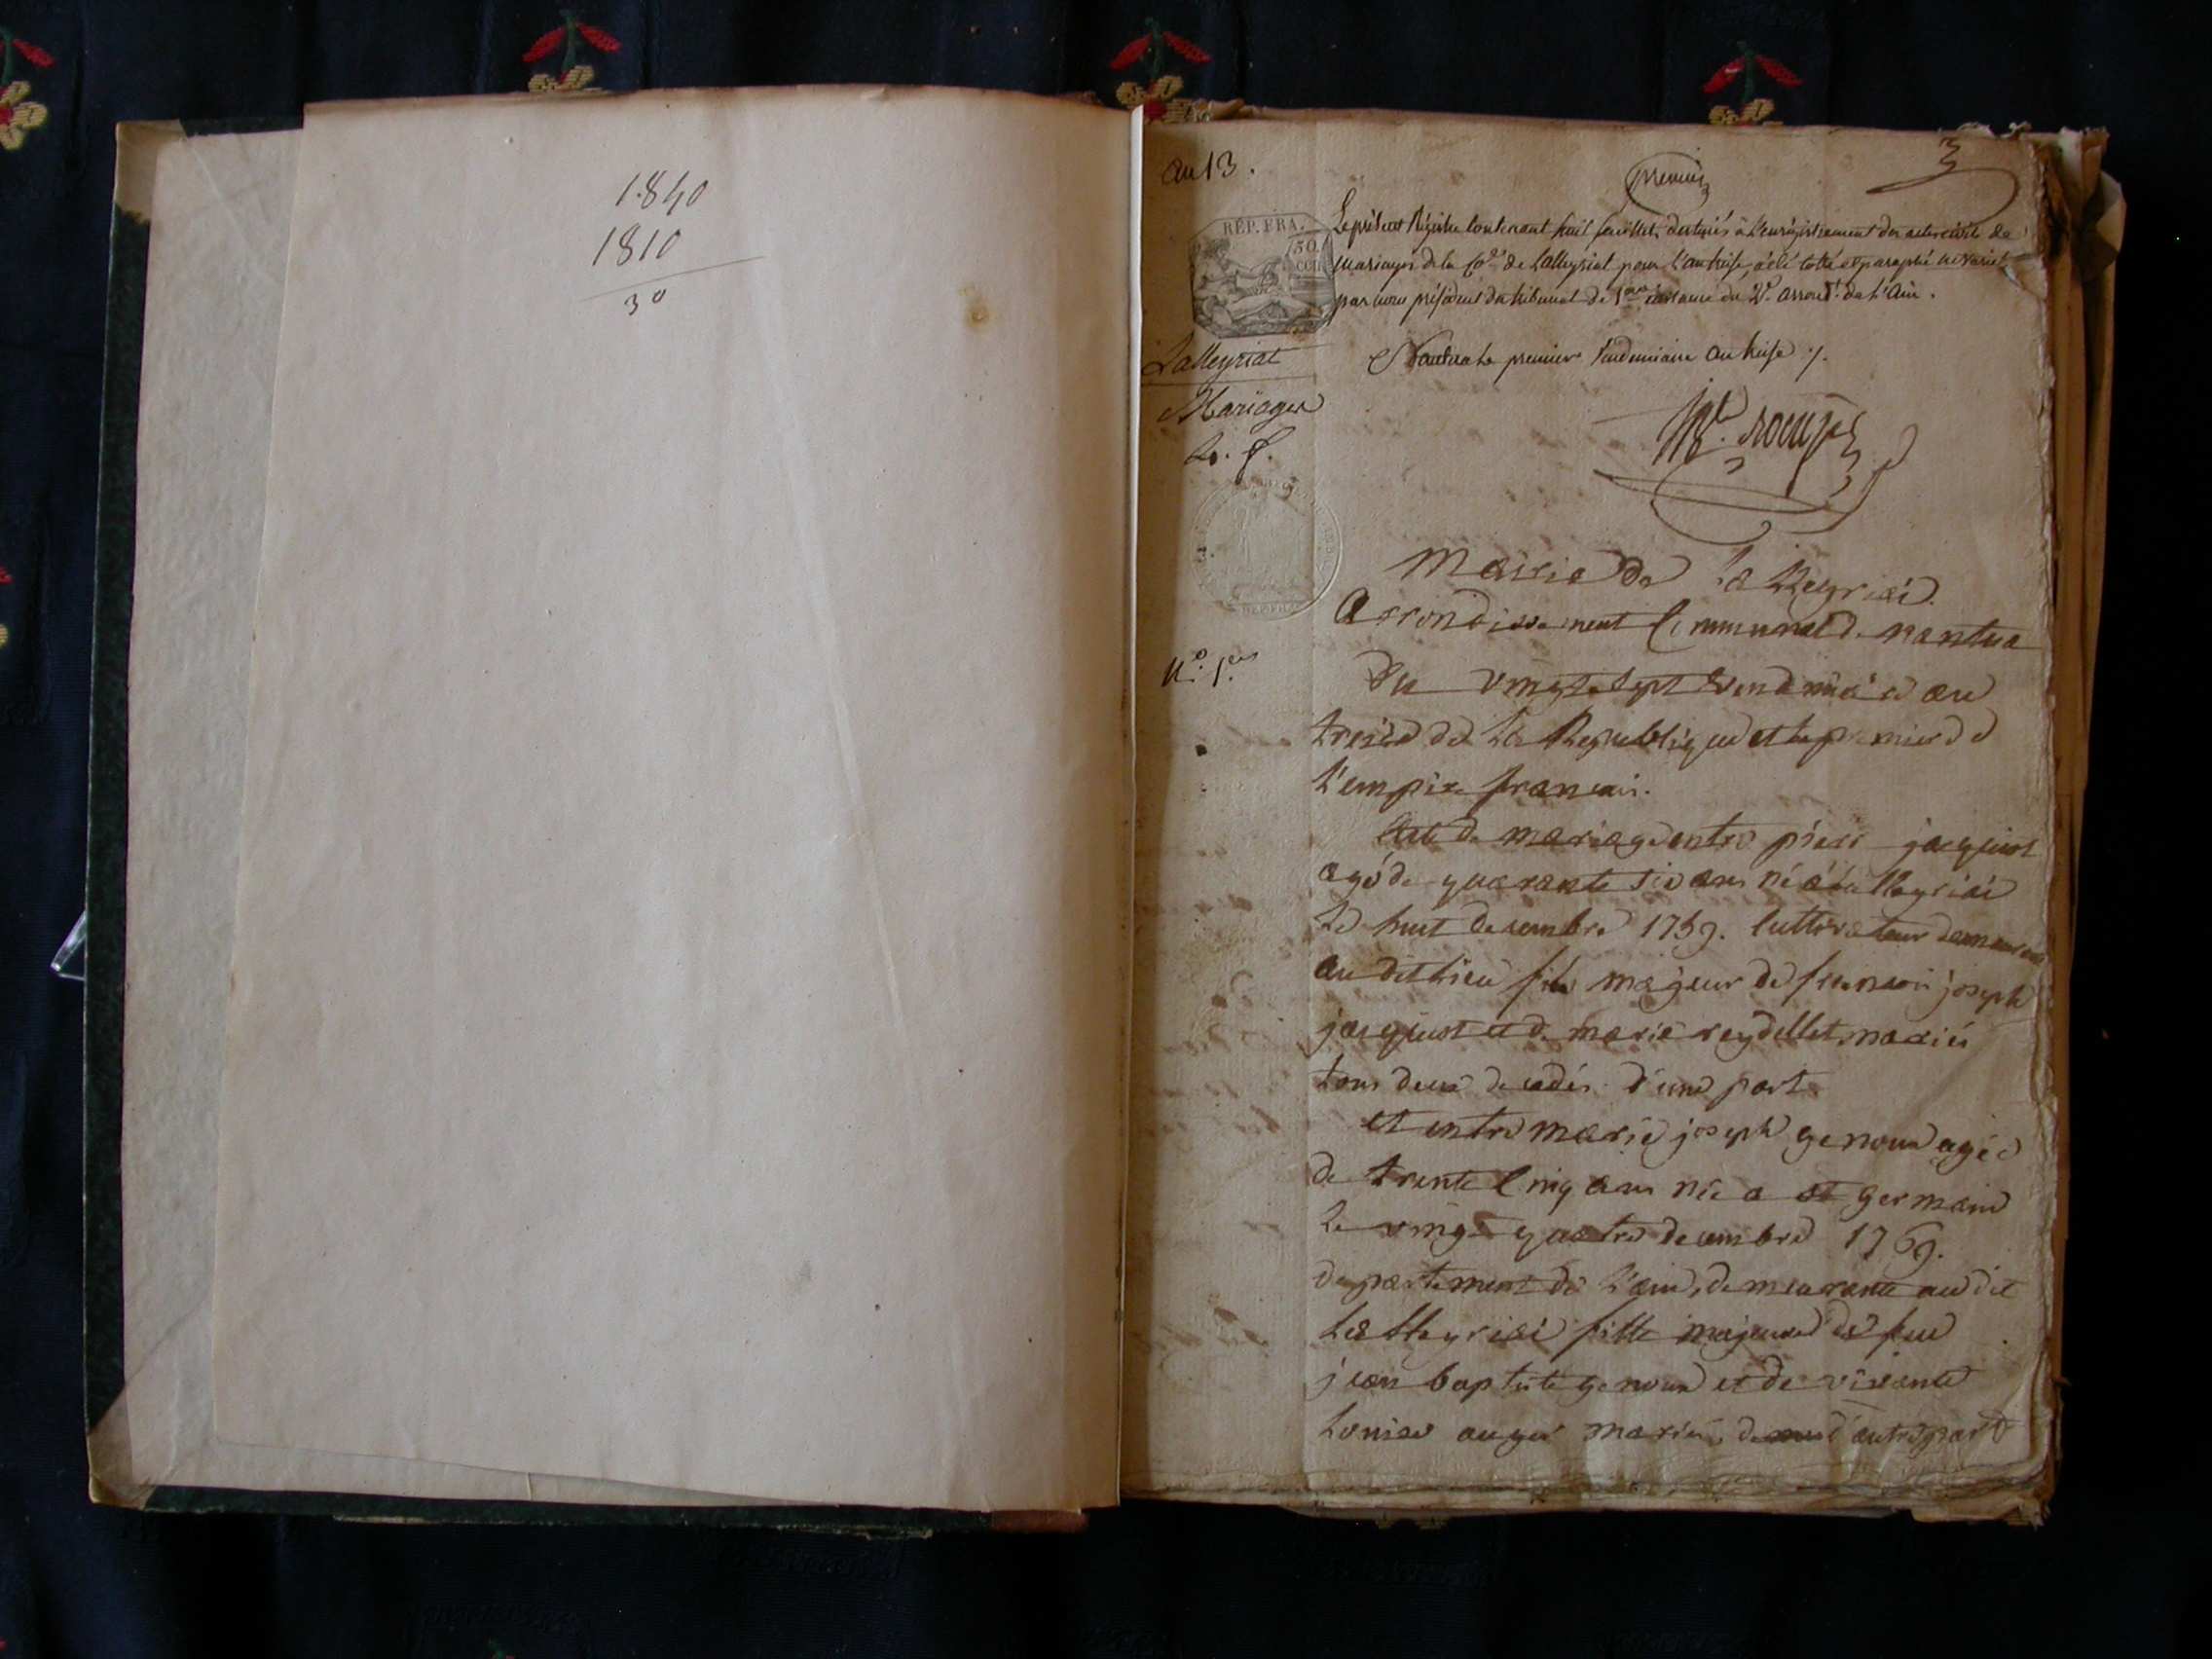 1840
1810
30
an 13.
premier
RÉP. FRA.
50
Le présent Régistre contenant huit feuillets destinés à l'enrégistrement des actes civils de
mariages de la Co.ne de Lalleyriat pour l'an treise, a été cotté et paraphé
par nous président du tribunal de 1ere instance du 2e. arrond.t de l'Ain.
Lalleyriat
Nantua le premier Vendemiaire an treise
Mariages
Mairie de La lleyriai.
Arrondissement Communal de nantua
N.o 1.er
Du vingt sept Vendmiaire an
treise de La Republique et le premier de
L'empire francais.
Acte de mariage entre pierr jacquiot
agé de quarante sis ans né a La lleyriai
Le huit decembre 1759. cuttivateur demeurant
au dit Lieu fils majeur de francois joseph
jacquiot et de marie reydellet mariés
tous deux decedés d'une part
et entre marie joseph genoux agée
de trente cinq ans née a st germain
Le vingt quatre decembre 1769.
departement de L'ain, demeurante au dit
La lleyriai fille majeure de feu
jean baptiste genoux et de vivante
Louise auger mariés, d'autre part